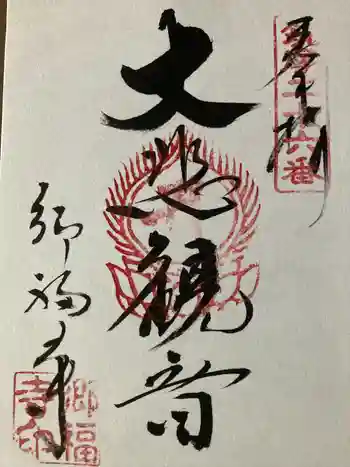 奉拝
第二十六番
大悲観音
御福寺
御福寺印